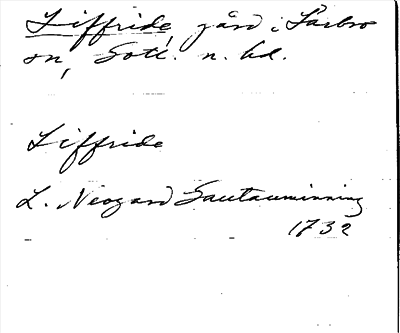 Liffride, gård i Lärbro
sn, Gotl. n. hd.
Liffride
L. Neogard Gautauminning
1732